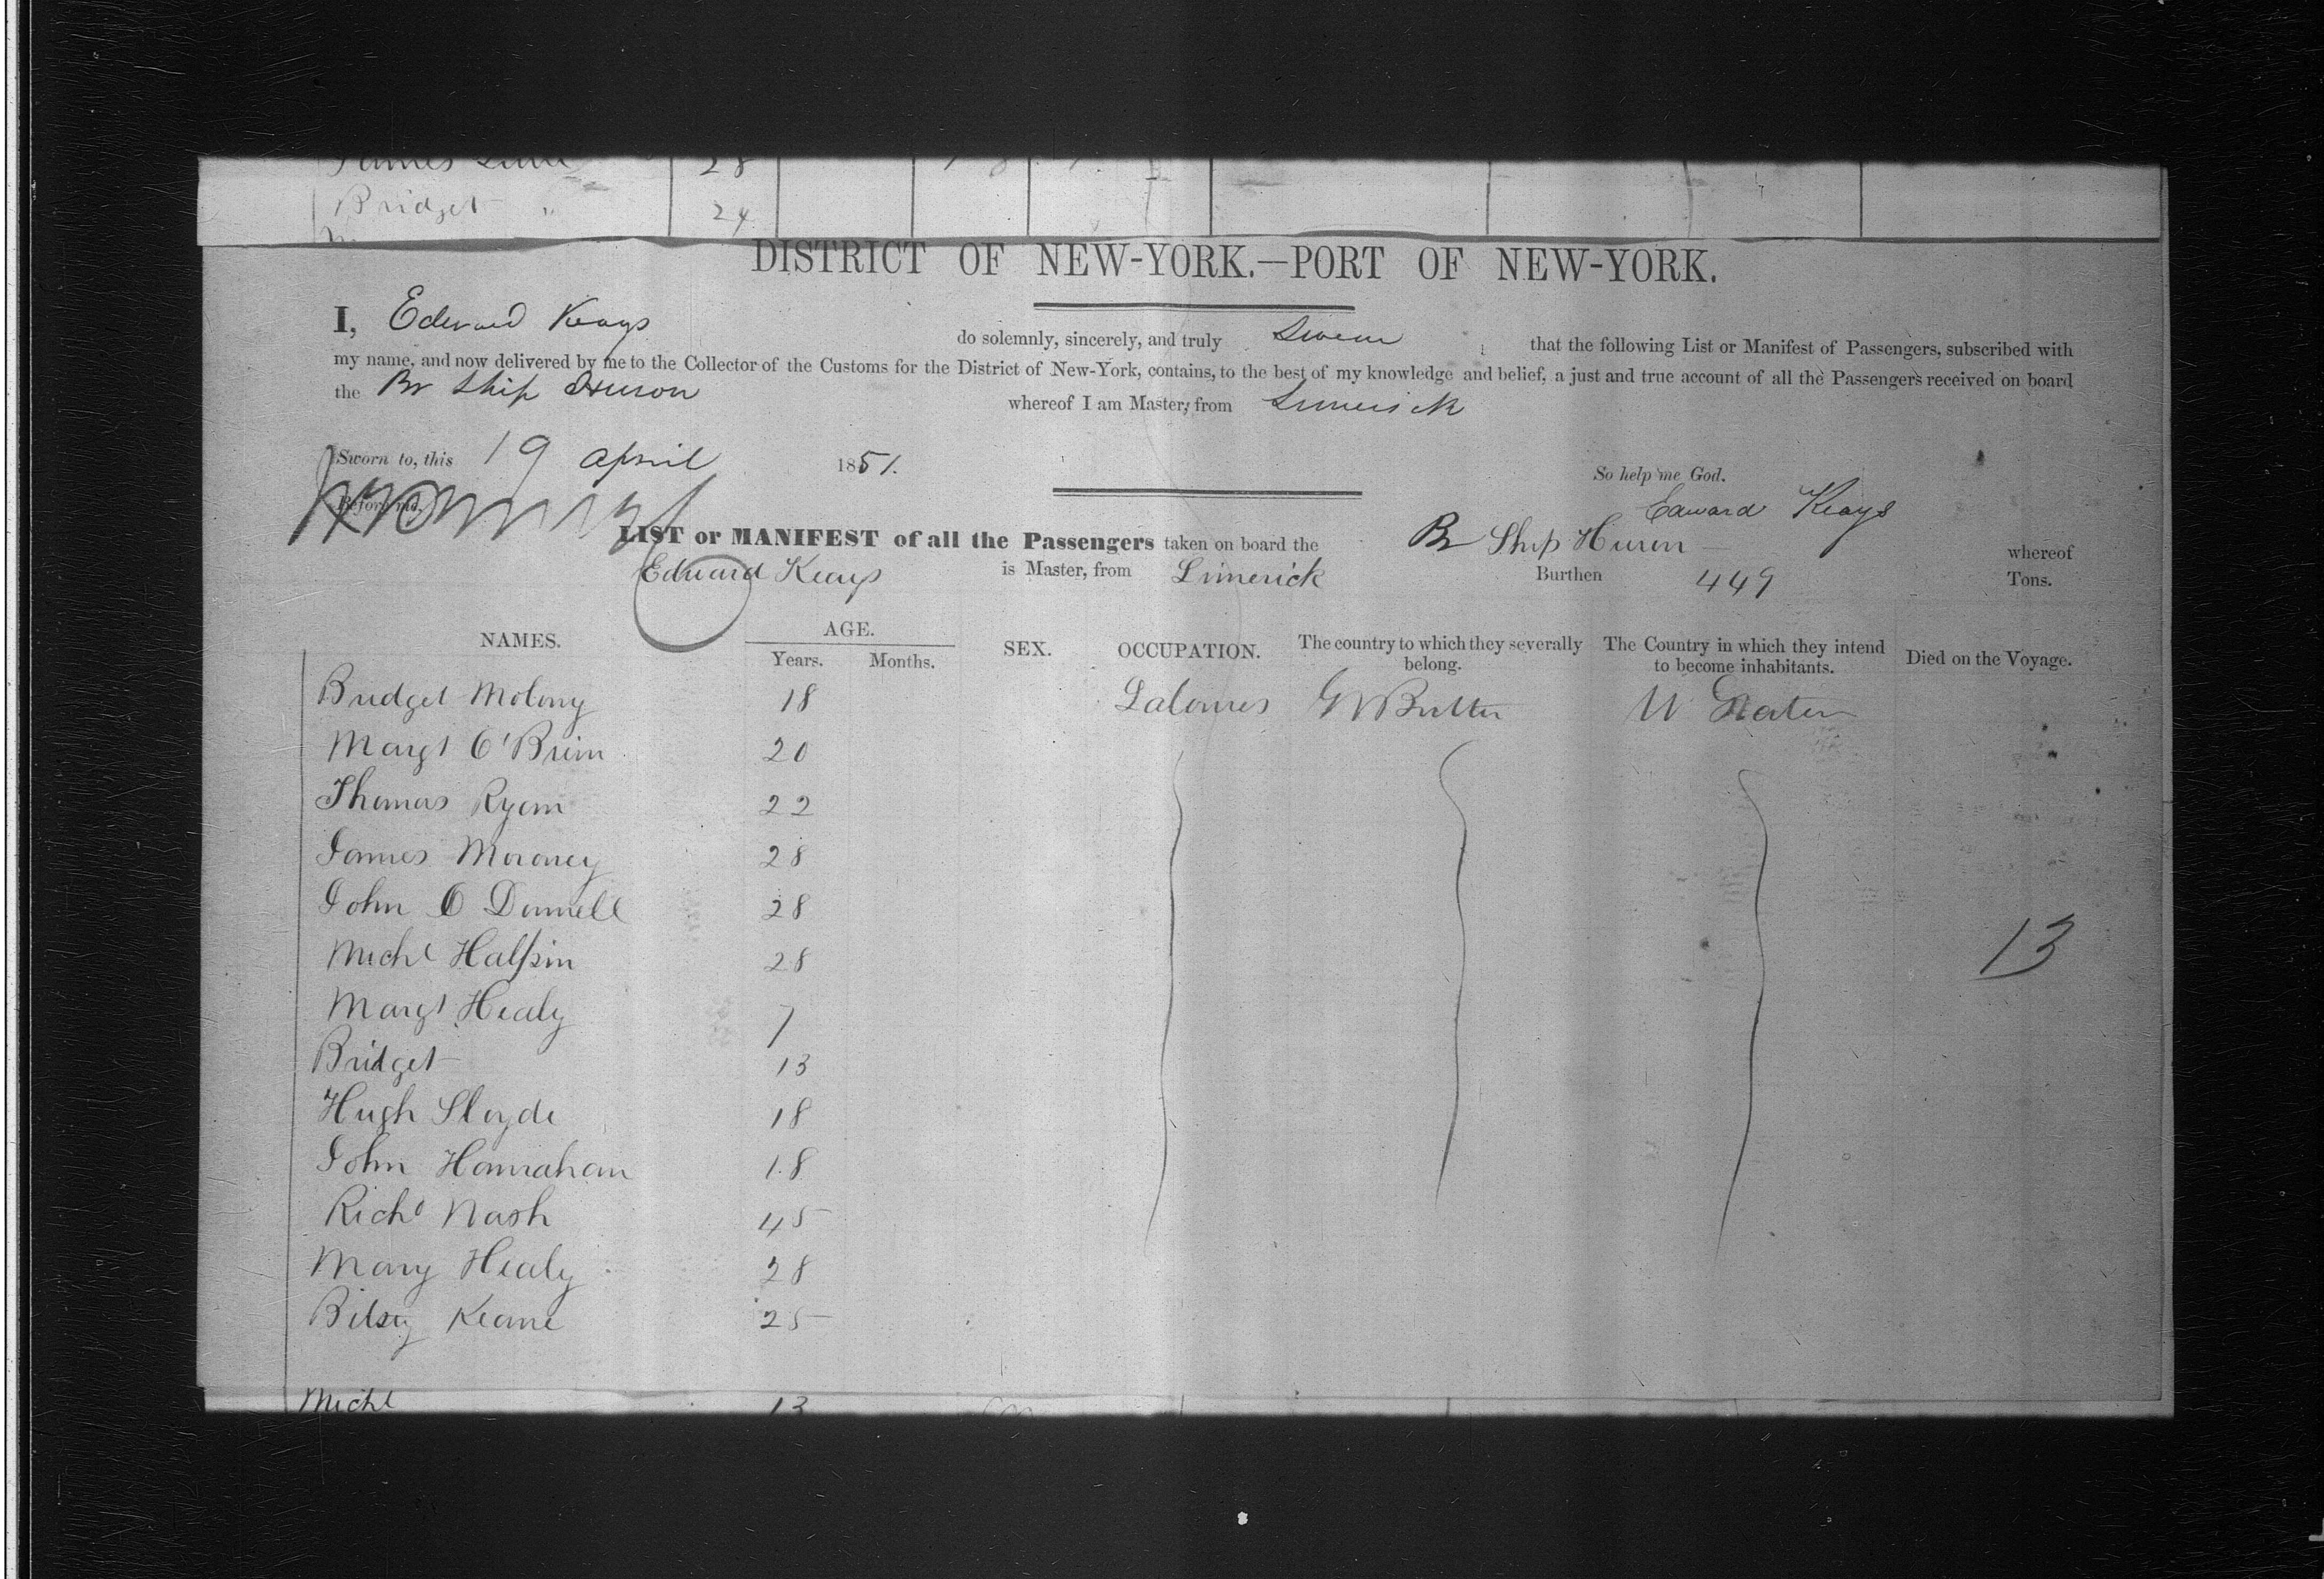 James 28
Bridget " 24
DISTRICT OF NEW-YORK.—PORT OF NEW-YORK.
I, Edward Keays do solemnly, sincerely, and truly Swear that the following List or Manifest of Passengers, subscribed with
my name, and now delivered by me to the Collector of the Customs for the District of New-York, contains, to the best of my knowledge and belief, a just and true account of all the Passengers received on board
the Br Ship Huron whereof I am Master, from Limerick
Sworn to, this 19 April 1851.
So help me God.
Before me,
Edward Keays
LIST or MANIFEST of all the Passengers taken on board the Br Ship Huron whereof
Edward Keays is Master, from Limerick Burthen 449 Tons.
NAMES. AGE. SEX. OCCUPATION. The country to which they severally belong. The Country in which they intend to become inhabitants. Died on the Voyage.
Years. Months.
Bridget Molony 18 Labourers G Britten U States
Margt O'Brien 20
Thomas Ryan 22
James Moroney 28
John O Donnell 28
Michl Halpin 28
13
Margt Healy 7
Bridget 13
Hugh Sloyde 18
John Hanrahan 18
Richd Nash 45
Mary Healy 28
Betsy Keane 25
Michl 13